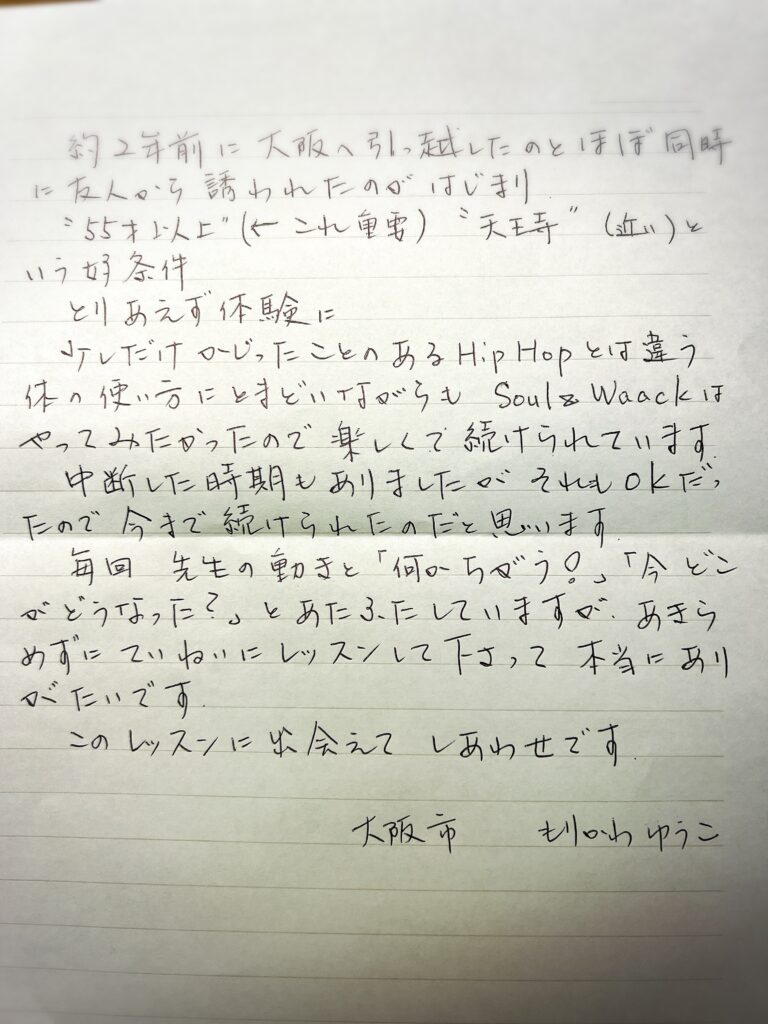 約2年前に大阪へ引っ越したのとほぼ同時
に友人から誘われたのがはじまり
"55才以上"(← これ重要) "天王寺" (近い)と
いう好条件
とりあえず体験に
少しだけかじったことのあるHipHopとは違う
体の使い方にとまどいながらも Soul&Waackは
やってみたかったので楽しくて続けられています
中断した時期もありましたがそれもOKだっ
たので今まで続けられたのだと思います
毎回 先生の動きと「何かちがう!」「今どこ
がどうなった?」とあたふたしていますが、あきら
めずにていねいにレッスンして下さって本当にあり
がたいです
このレッスンに出会えてしあわせです
大阪市 もりかわゆうこ